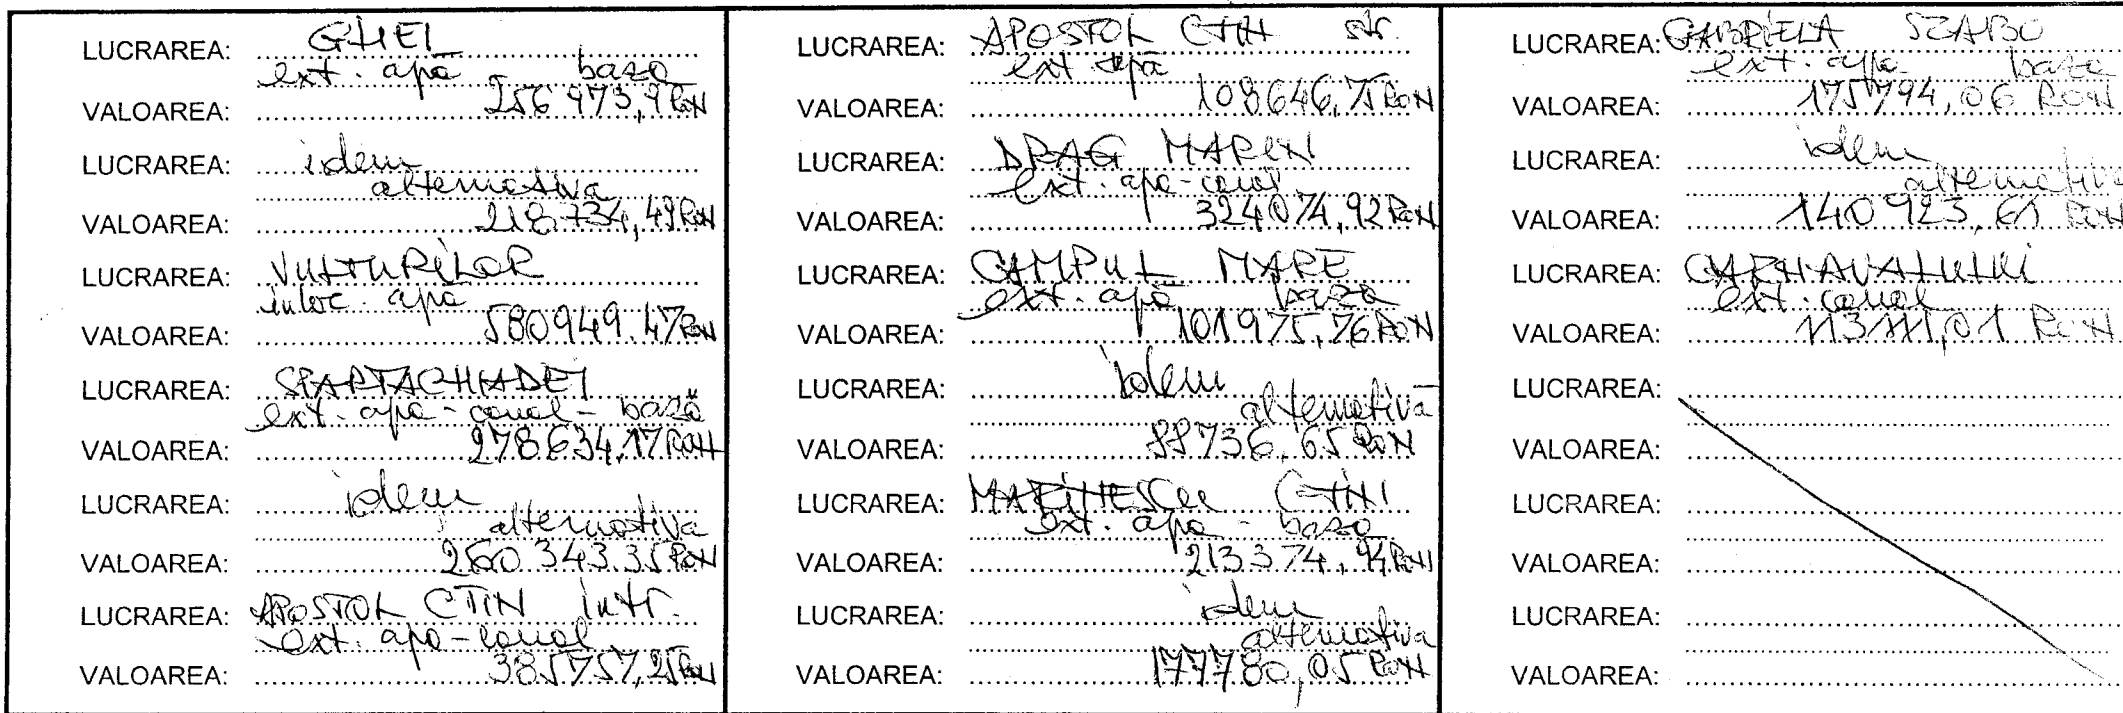 LUCRAREA: GHEI
ext. apă baza
VALOAREA: 256 973,9 RON
LUCRAREA: idem
alternativa
VALOAREA: 218 734,49 RON
LUCRAREA: VULTURILOR
inloc. apă
VALOAREA: 580949.47 RON
LUCRAREA: SPARTACHIADEI
ext. apa - canal - bază
VALOAREA: 278634,17 RON
LUCRAREA: idem
alternativa
VALOAREA: 260 343.35 RON
LUCRAREA: APOSTOL CTIN Intr.
ext. apa - canal
VALOAREA: 385757,25 RON
LUCRAREA: APOSTOL CTIN str.
ext apă
VALOAREA: 108646,75 RON
LUCRAREA: DRAG MARIN
ext. apa - canal
VALOAREA: 324074,92 RON
LUCRAREA: CAMPUL MARE
ext. apă baza
VALOAREA: 101975,76 RON
LUCRAREA: idem
alternativă
VALOAREA: 88736,65 RON
LUCRAREA: MARINESCU CTIN
ext. apa - baza
VALOAREA: 213374,94 RON
LUCRAREA: idem
alternativa
VALOAREA: 177780,05 RON
LUCRAREA: GABRIELA SZABO
ext. apa baza
VALOAREA: 175794,06 RON
LUCRAREA: idem
alternativa
VALOAREA: 140923,61 RON
LUCRAREA: CARNAVALULUI
ext. canal
VALOAREA: 113111,01 RON
LUCRAREA:
VALOAREA:
LUCRAREA:
VALOAREA:
LUCRAREA:
VALOAREA: